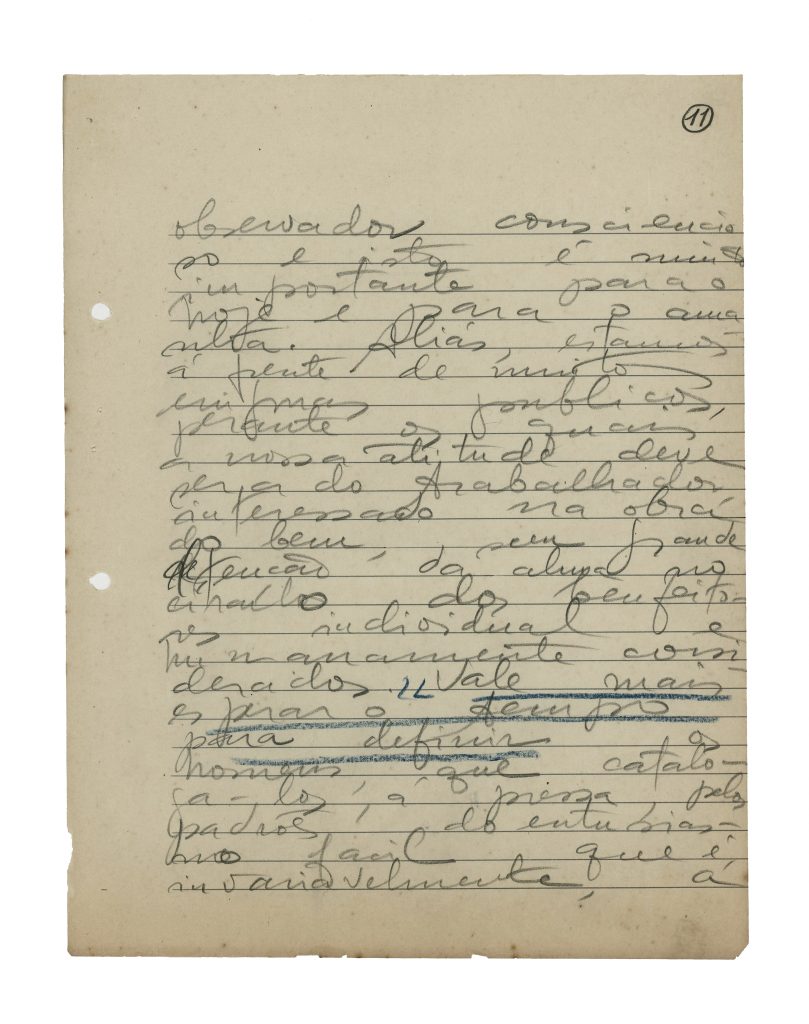 11
observador consciencio
so e isto é muito
importante para o
hoje e para o ama
nhã. Aliás, estamos
á frente de muito
enigmas publicos,
perante os quais
a nossa atitude deve
ser a do trabalhador
interessado na obra
do bem, sem grande
detenção da alma no
dos benfeito-
res individual e
humanamente consi
derados. Vale mais
esperar o tempo
para definir os
homens que catalo-
ga-los, á pressa, pelos
padrões do entusias-
mo facil que é,
invariavelmente, á